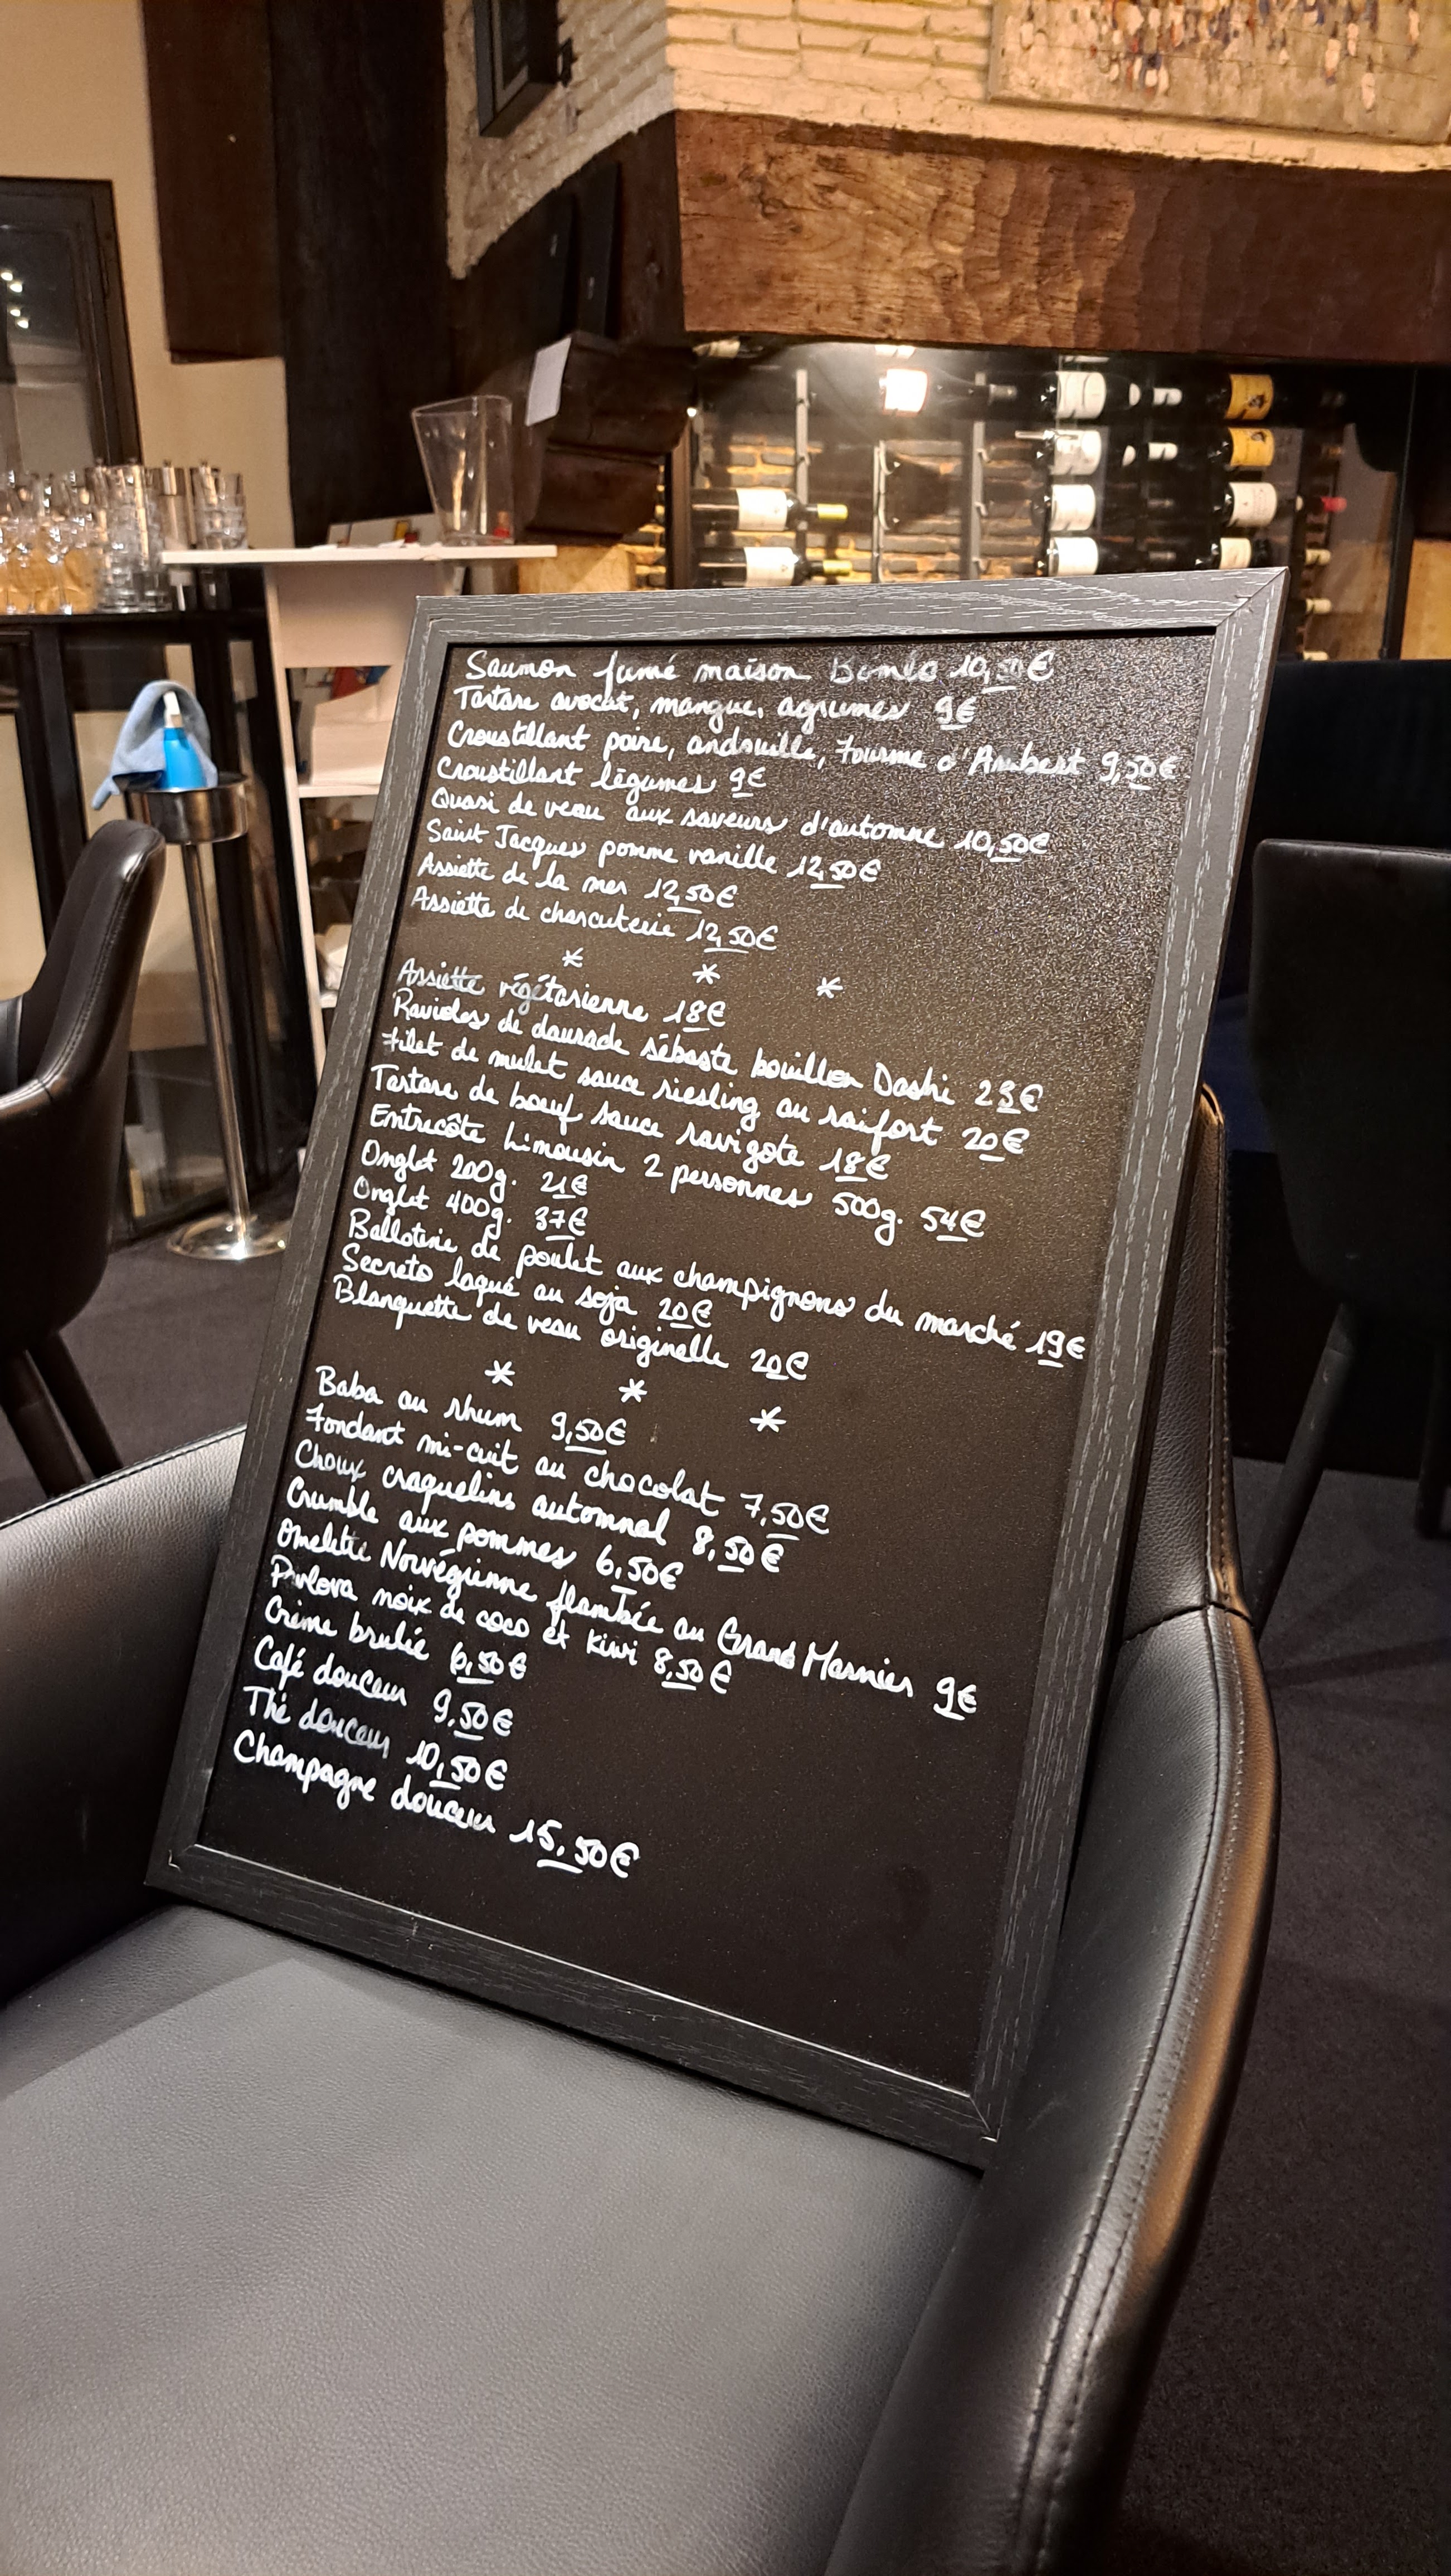 Saumon fumé maison 10,50€
Tartare avocat, mangue, agrumes 9€
Croustillant poire, andouille, fourme d'Ambert 9,50€
Croustillant légumes 9€
Quasi de veau aux saveurs d'automne 10,50€
Saint Jacques pomme vanille 12,50€
Assiette de la mer 12,50€
Assiette de charcuterie 12,50€
* * *
Assiette végétarienne 18€
Ravioles de daurade sébaste bouillon Dashi 23€
Filet de mulet sauce riesling au raifort 20€
Tartare de bœuf sauce ravigote 18€
Entrecôte Limousin 2 personnes 500g. 54€
Onglet 200g. 21€
Onglet 400g. 37€
Ballotine de poulet aux champignons du marché 19€
Secreto laqué au soja 20€
Blanquette de veau originelle 20€
* * *
Baba au rhum 9,50€
Fondant mi-cuit au chocolat 7,50€
Choux craquelins automnal 8,50€
Crumble aux pommes 6,50€
Omelette Norvégienne flambée au Grand Marnier 9€
Pavlova noix de coco et kiwi 8,50€
Crème brulée 6,50€
Café douceur 9,50€
Thé douceur 10,50€
Champagne douceur 15,50€